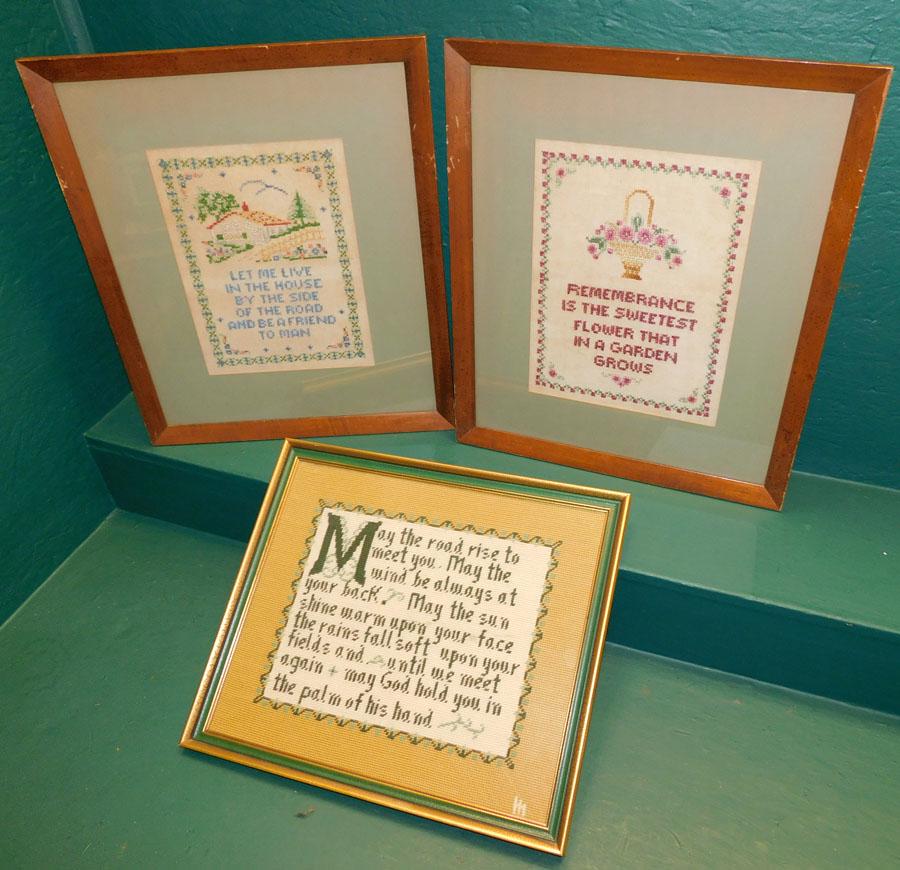 LET ME LIVE
IN THE HOUSE
BY THE SIDE
OF THE ROAD
AND BE A FRIEND
TO MAN
REMEMBRANCE
IS THE SWEETEST
FLOWER THAT
IN A GARDEN
GROWS
May the road rise to
meet you. May the
wind be always at
your back. May the sun
shine warm upon your face
the rains fall soft upon your
fields and until we meet
again + may God hold you in
the palm of his hand